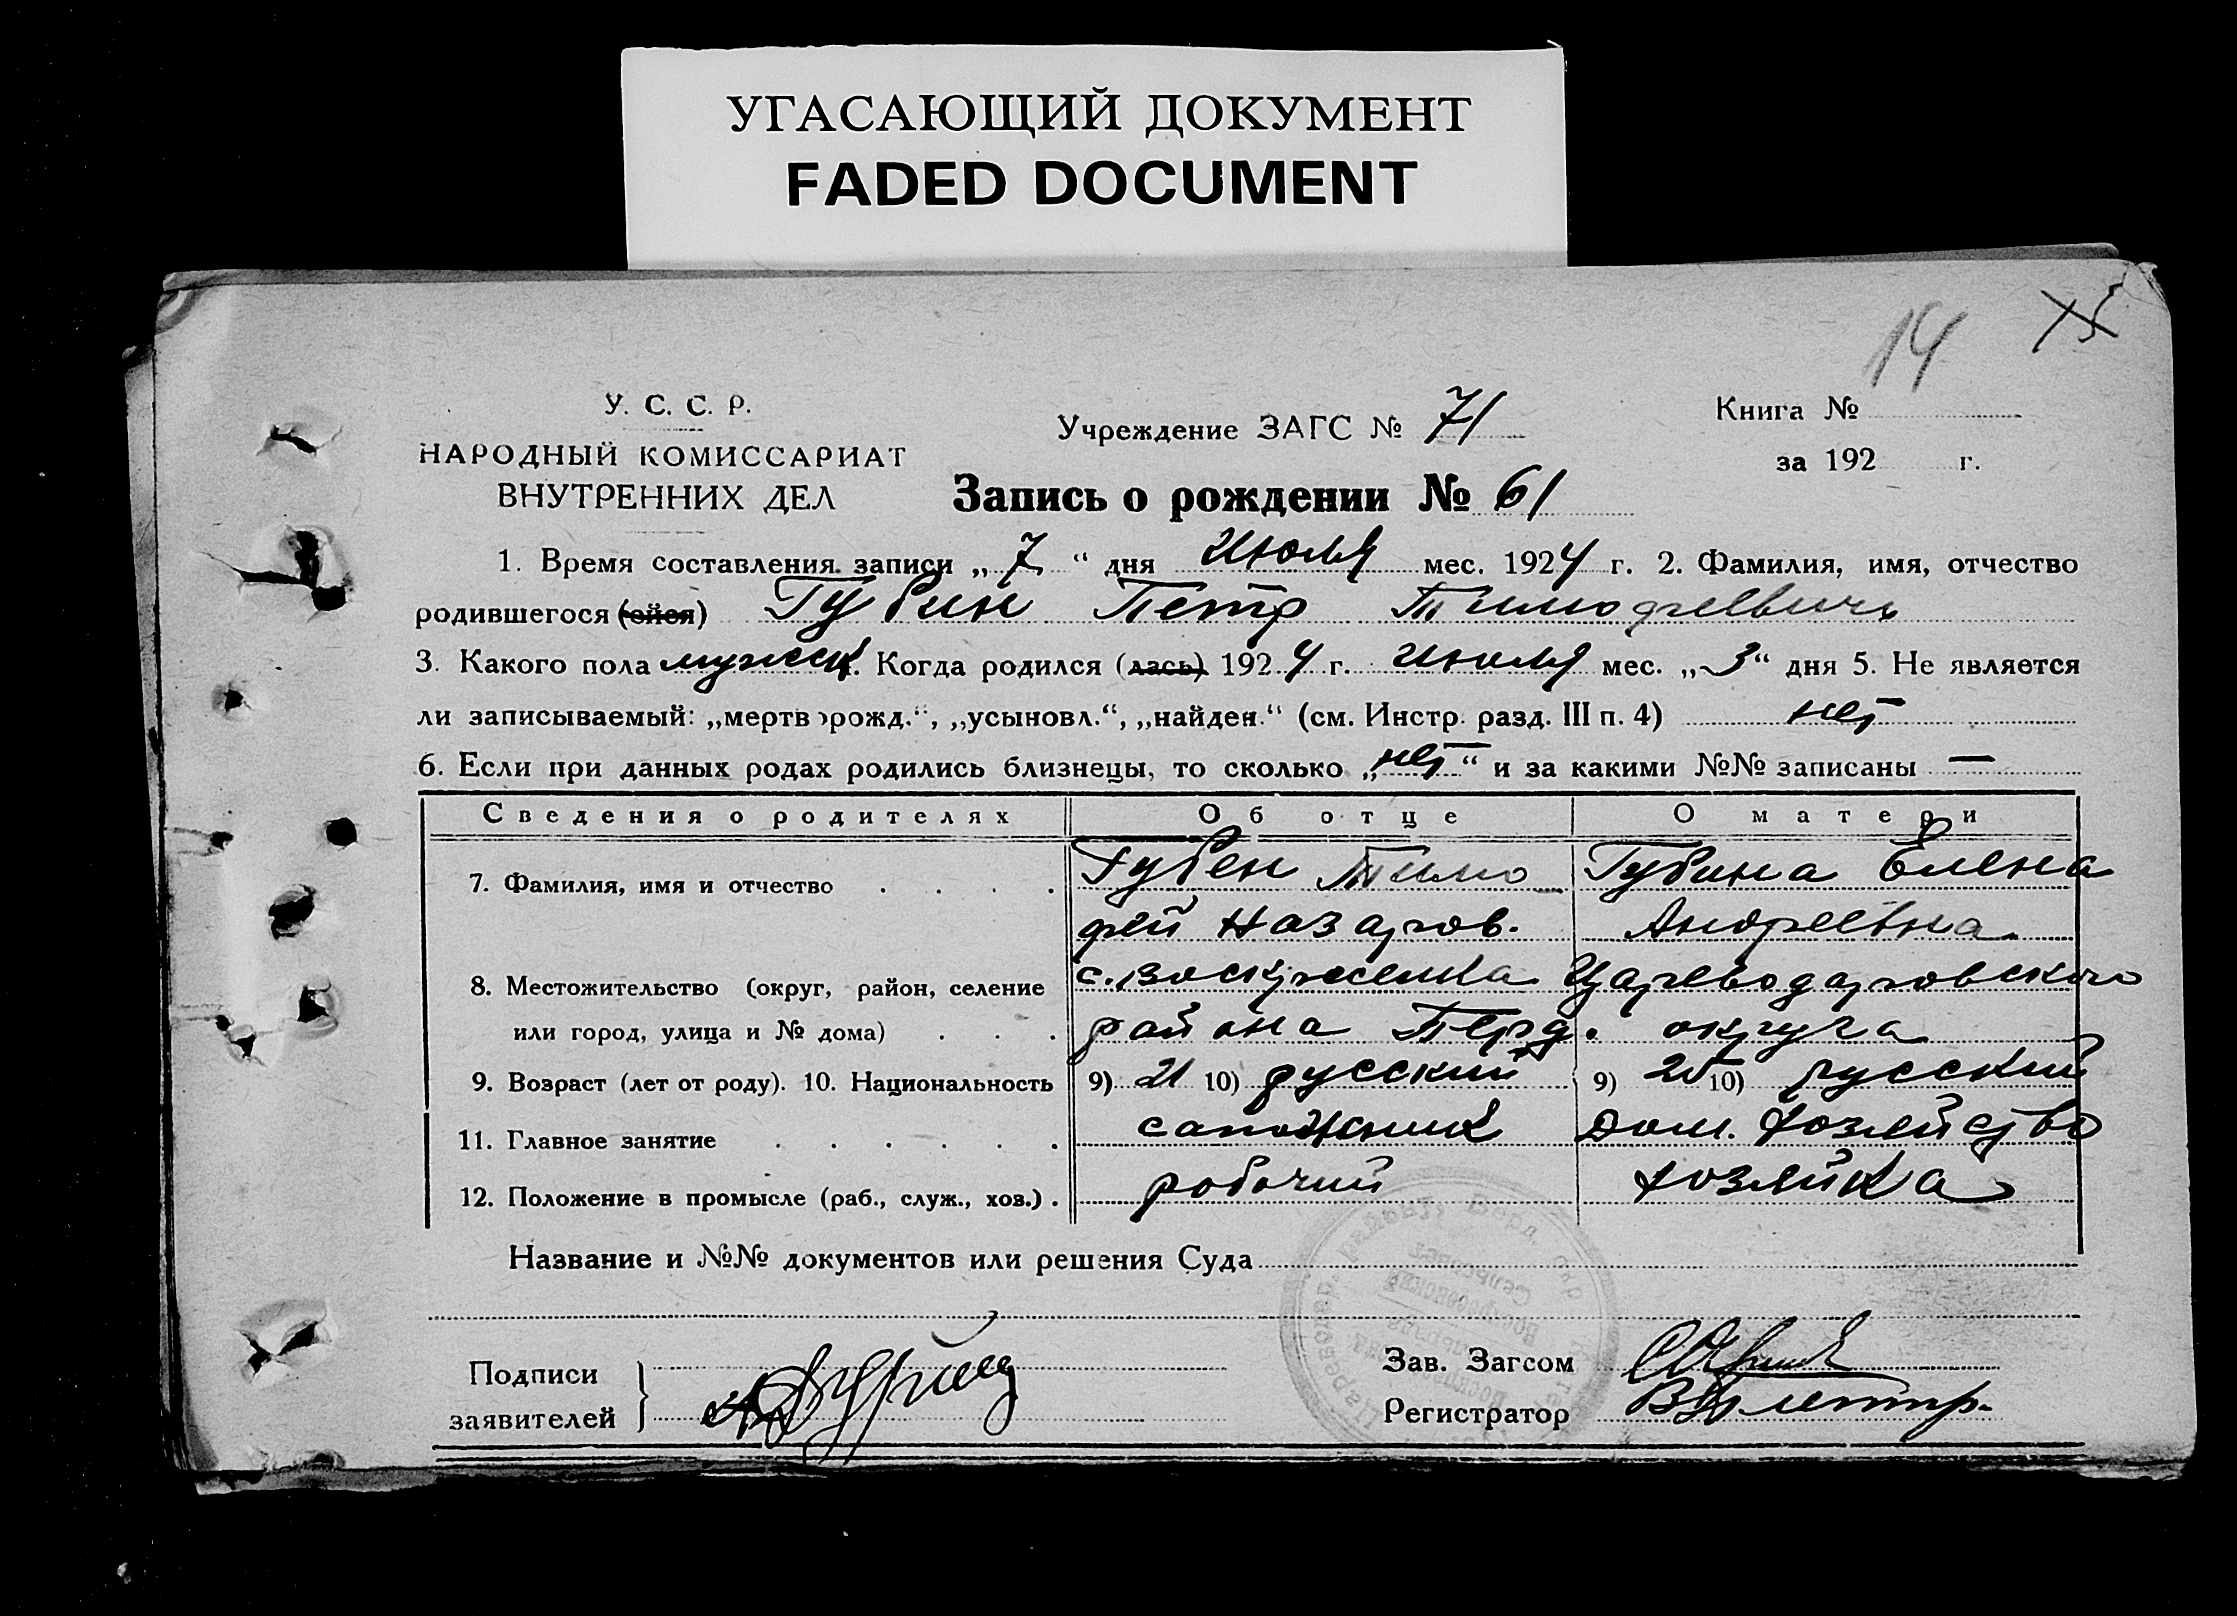 УГАСАЮЩИЙ ДОКУМЕНТ
FADED DOCUMENT
14
У. С. С. Р.
НАРОДНЫЙ КОМИССАРИАТ
ВНУТРЕННИХ ДЕЛ
Учреждение ЗАГС № 71
Книга №
за 192 г.
Запись о рождении № 61
1. Время составления записи „ 7 “ дня Июля мес. 1924 г. 2. Фамилия, имя, отчество
родившегося (ейся) Губин Петр Тимофеевичь
3. Какого пола мужск. Когда родился (лась) 1924 г. Июля мес. „ 3 “ дня 5. Не является
ли записываемый: „мертворожд.“, „усыновл.“, „найден.“ (см. Инстр. разд. III п. 4) нет
6. Если при данных родах родились близнецы, то сколько „нет“ и за какими №№ записаны —
Сведения о родителях Об отце О матери
7. Фамилия, имя и отчество . . . . Губен Тимо Губина Елена
фей Назаров. Андреевна
8. Местожительство (округ, район, селение с. Воскресенка Цареводаровского
или город, улица и № дома) . . . района Берд. округа
9. Возраст (лет от роду). 10. Национальность 9) 21 10) русский 9) 20 10) русский
11. Главное занятие . . . . . . сапожник Дом. хозяйство
12. Положение в промысле (раб., служ., хоз.) . робочий хозяйка
Название и №№ документов или решения Суда
Подписи
заявителей
Зав. Загсом
Регистратор